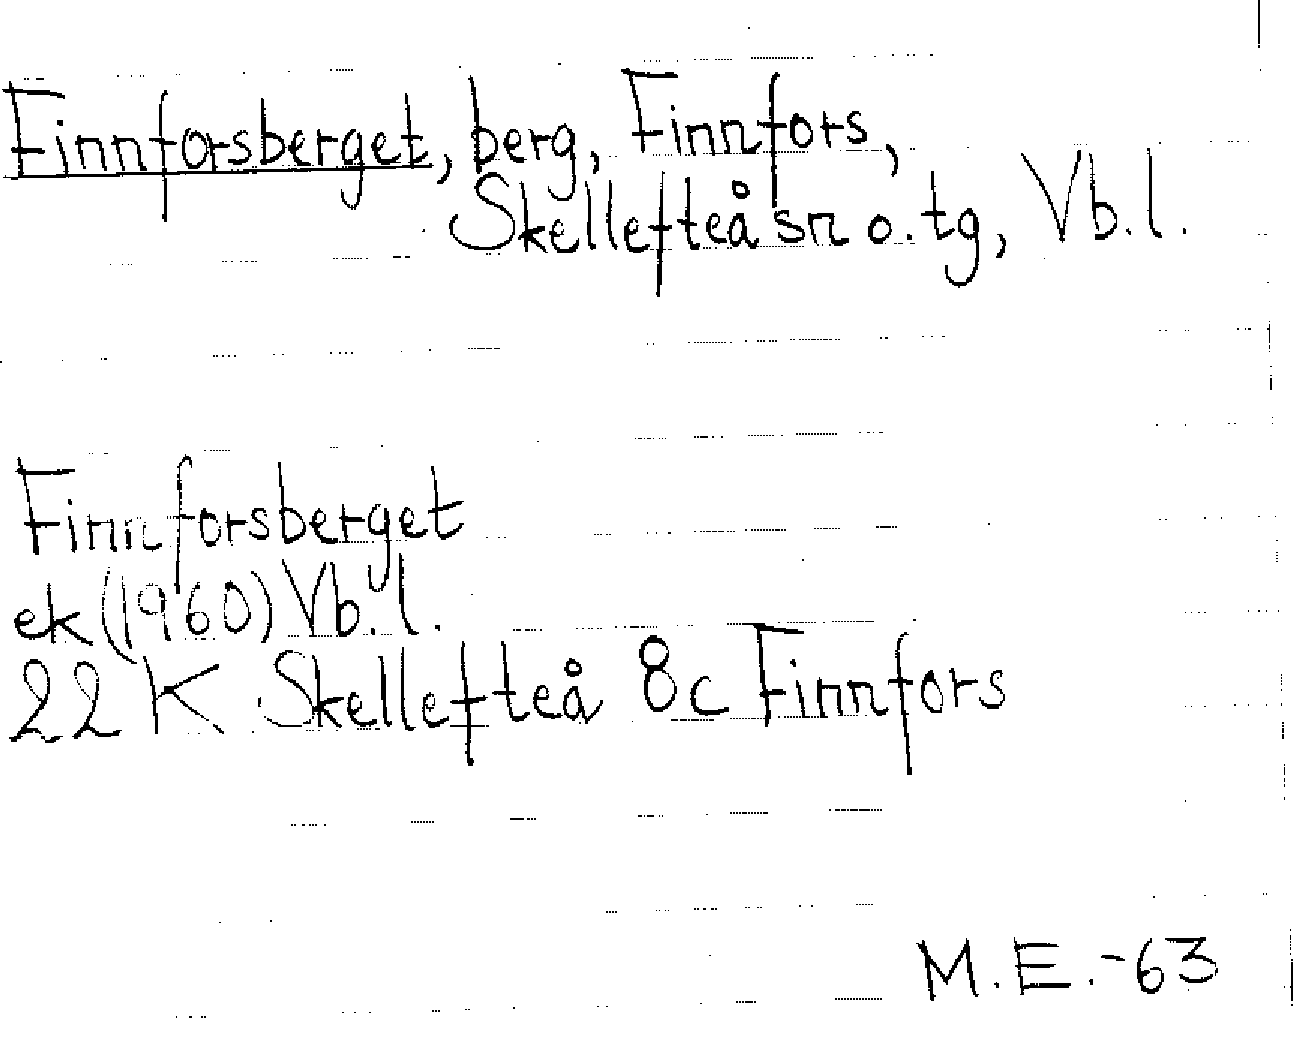 Finnforsberget, berg, Finnfors,
Skellefteå sn o. tg, Vb.l.
Finnforsberget
ek (1960) Vb.l.
22 K Skellefteå 8c Finnfors
M.E.-63